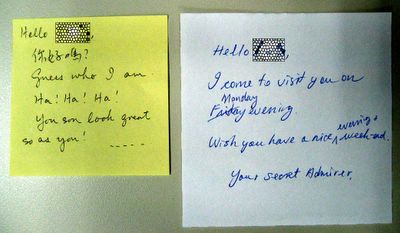 Hello
Guess who I am
Ha! Ha! Ha!
You son look great
so as you! .....
Hello
I come to visit you on
Monday
Friday evening.
evening +
Wish you have a nice week-end.
Your secret Admirer.